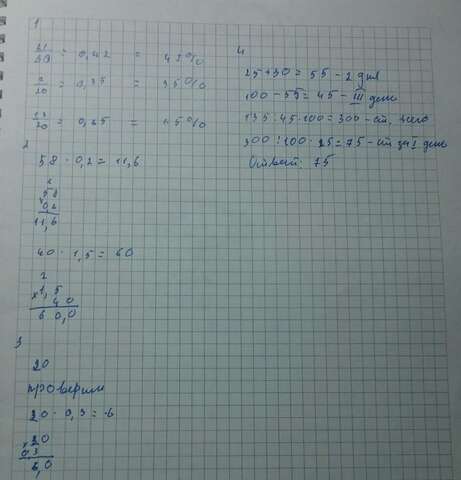 1
21/50 = 0,42 = 42%
7/20 = 0,35 = 35%
13/20 = 0,65 = 65%
2
58 · 0,2 = 11,6
58
0,2
11,6
40 · 1,5 = 60
2
×1,5
40
60,0
3
20
проверим
20 · 0,3 = 6
×20
0,3
6,0
4
25+30 = 55 - 2 дня
100 - 55 = 45 - III день
135 : 45 · 100 = 300 - ст. всего
300 : 100 · 25 = 75 - ст за I день
Ответ: 75